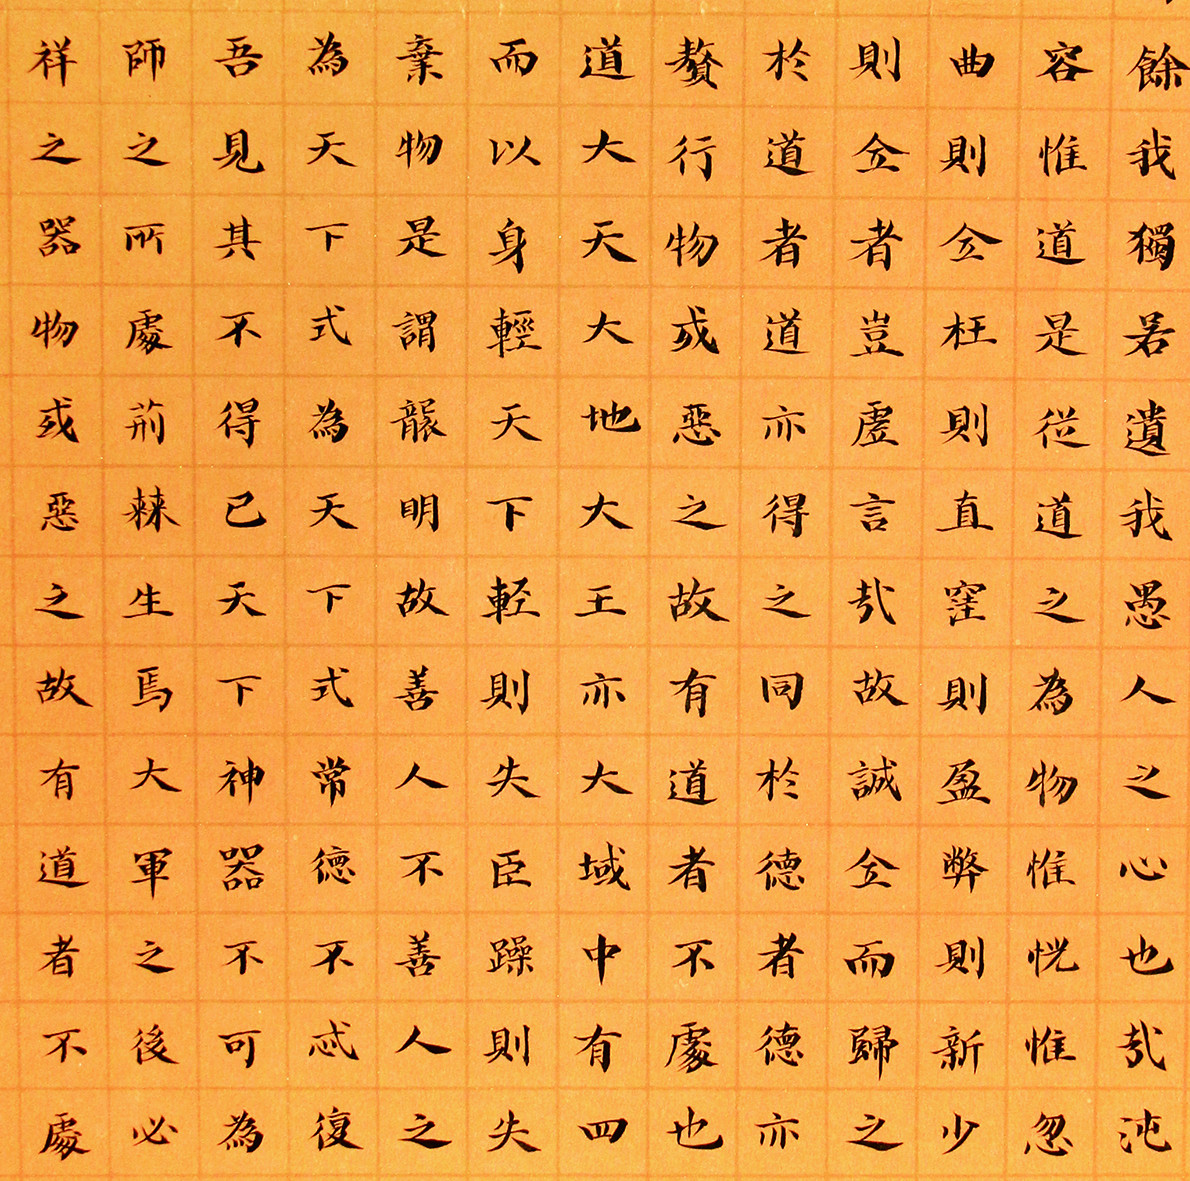 餘我獨若遺我愚人之心也哉沌
容惟道是從道之為物惟恍惟忽
曲則全枉則直窪則盈弊則新少
則全者豈虛言哉故誠全而歸之
於道者道亦得之同於德者德亦
贅行物或惡之故有道者不處也
道大天大地大王亦大域中有四
而以身輕天下輕則失臣躁則失
棄物是謂襲明故善人不善人之
為天下式為天下式常德不忒復
吾見其不得已天下神器不可為
師之所處荊棘生焉大軍之後必
祥之器物或惡之故有道者不處